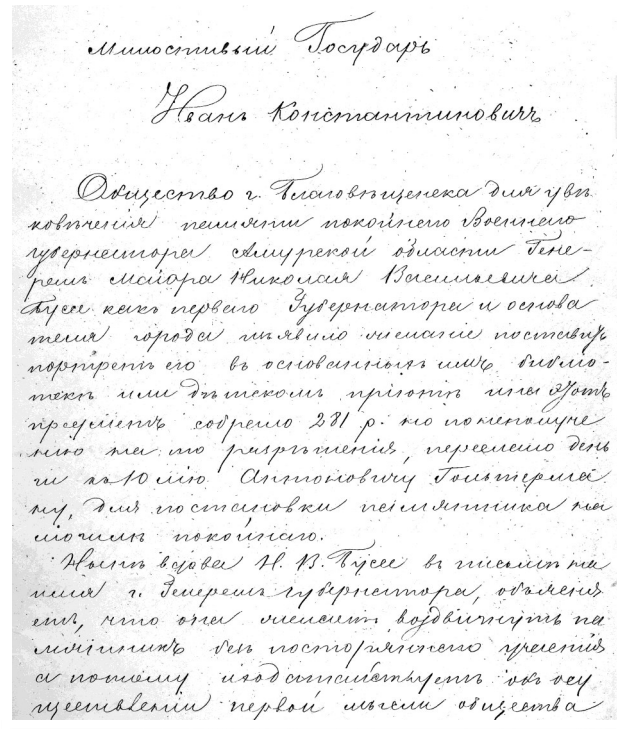 Милостивый Государь
Иванъ Константиновичъ
Общество г. Благовѣщенска для увѣ
ковѣченія памяти покойнаго Военнаго
губернатора Амурской области Гене-
ралъ Маіора Николая Васильевича
Буссе какъ перваго Губернатора и основа
теля города изъявило желаніе поставить
портретъ его въ основанныхъ имъ библіо-
текѣ или дѣтскомъ пріютѣ и на этотъ
предметъ собрало 281 р. но по неполуче
нію на то разрѣшенія, переслало день
ги къ Юлію Антоновичу Гольтерма
ну, для постановки памятника на
могилѣ покойнаго.
Нынѣ вдова Н. В. Буссе въ письмѣ на
имя г. Генералъ губернатора, объясня
етъ, что она желаетъ воздвигнуть па
мятникъ безъ посторонняго участія
а потому ходатайствуетъ объ осу
ществленіи первой мысли общества